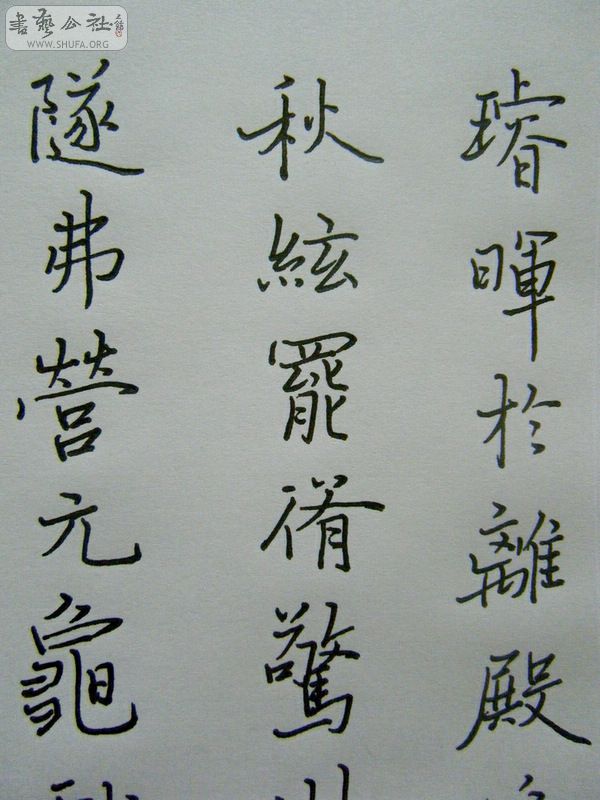 書藝公社
WWW.SHUFA.ORG
璿暉於離殿
秋絃罷驚
隧弗營元龜